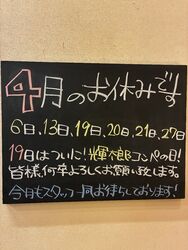 4月のお休みです
6日、13日、19日、20日、21日、27日
19日はついに!輝太郎コンペの日!
皆様、何卒よろしくお願い致します。
今日もスタッフ一同お待ちしております!